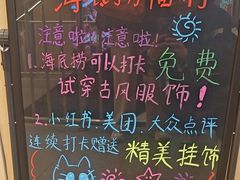 海底捞福利
注意啦！注意啦！
1.海底捞可以打卡免费
试穿古风服饰！
2.小红书.美团.大众点评
连续打卡赠送精美挂饰